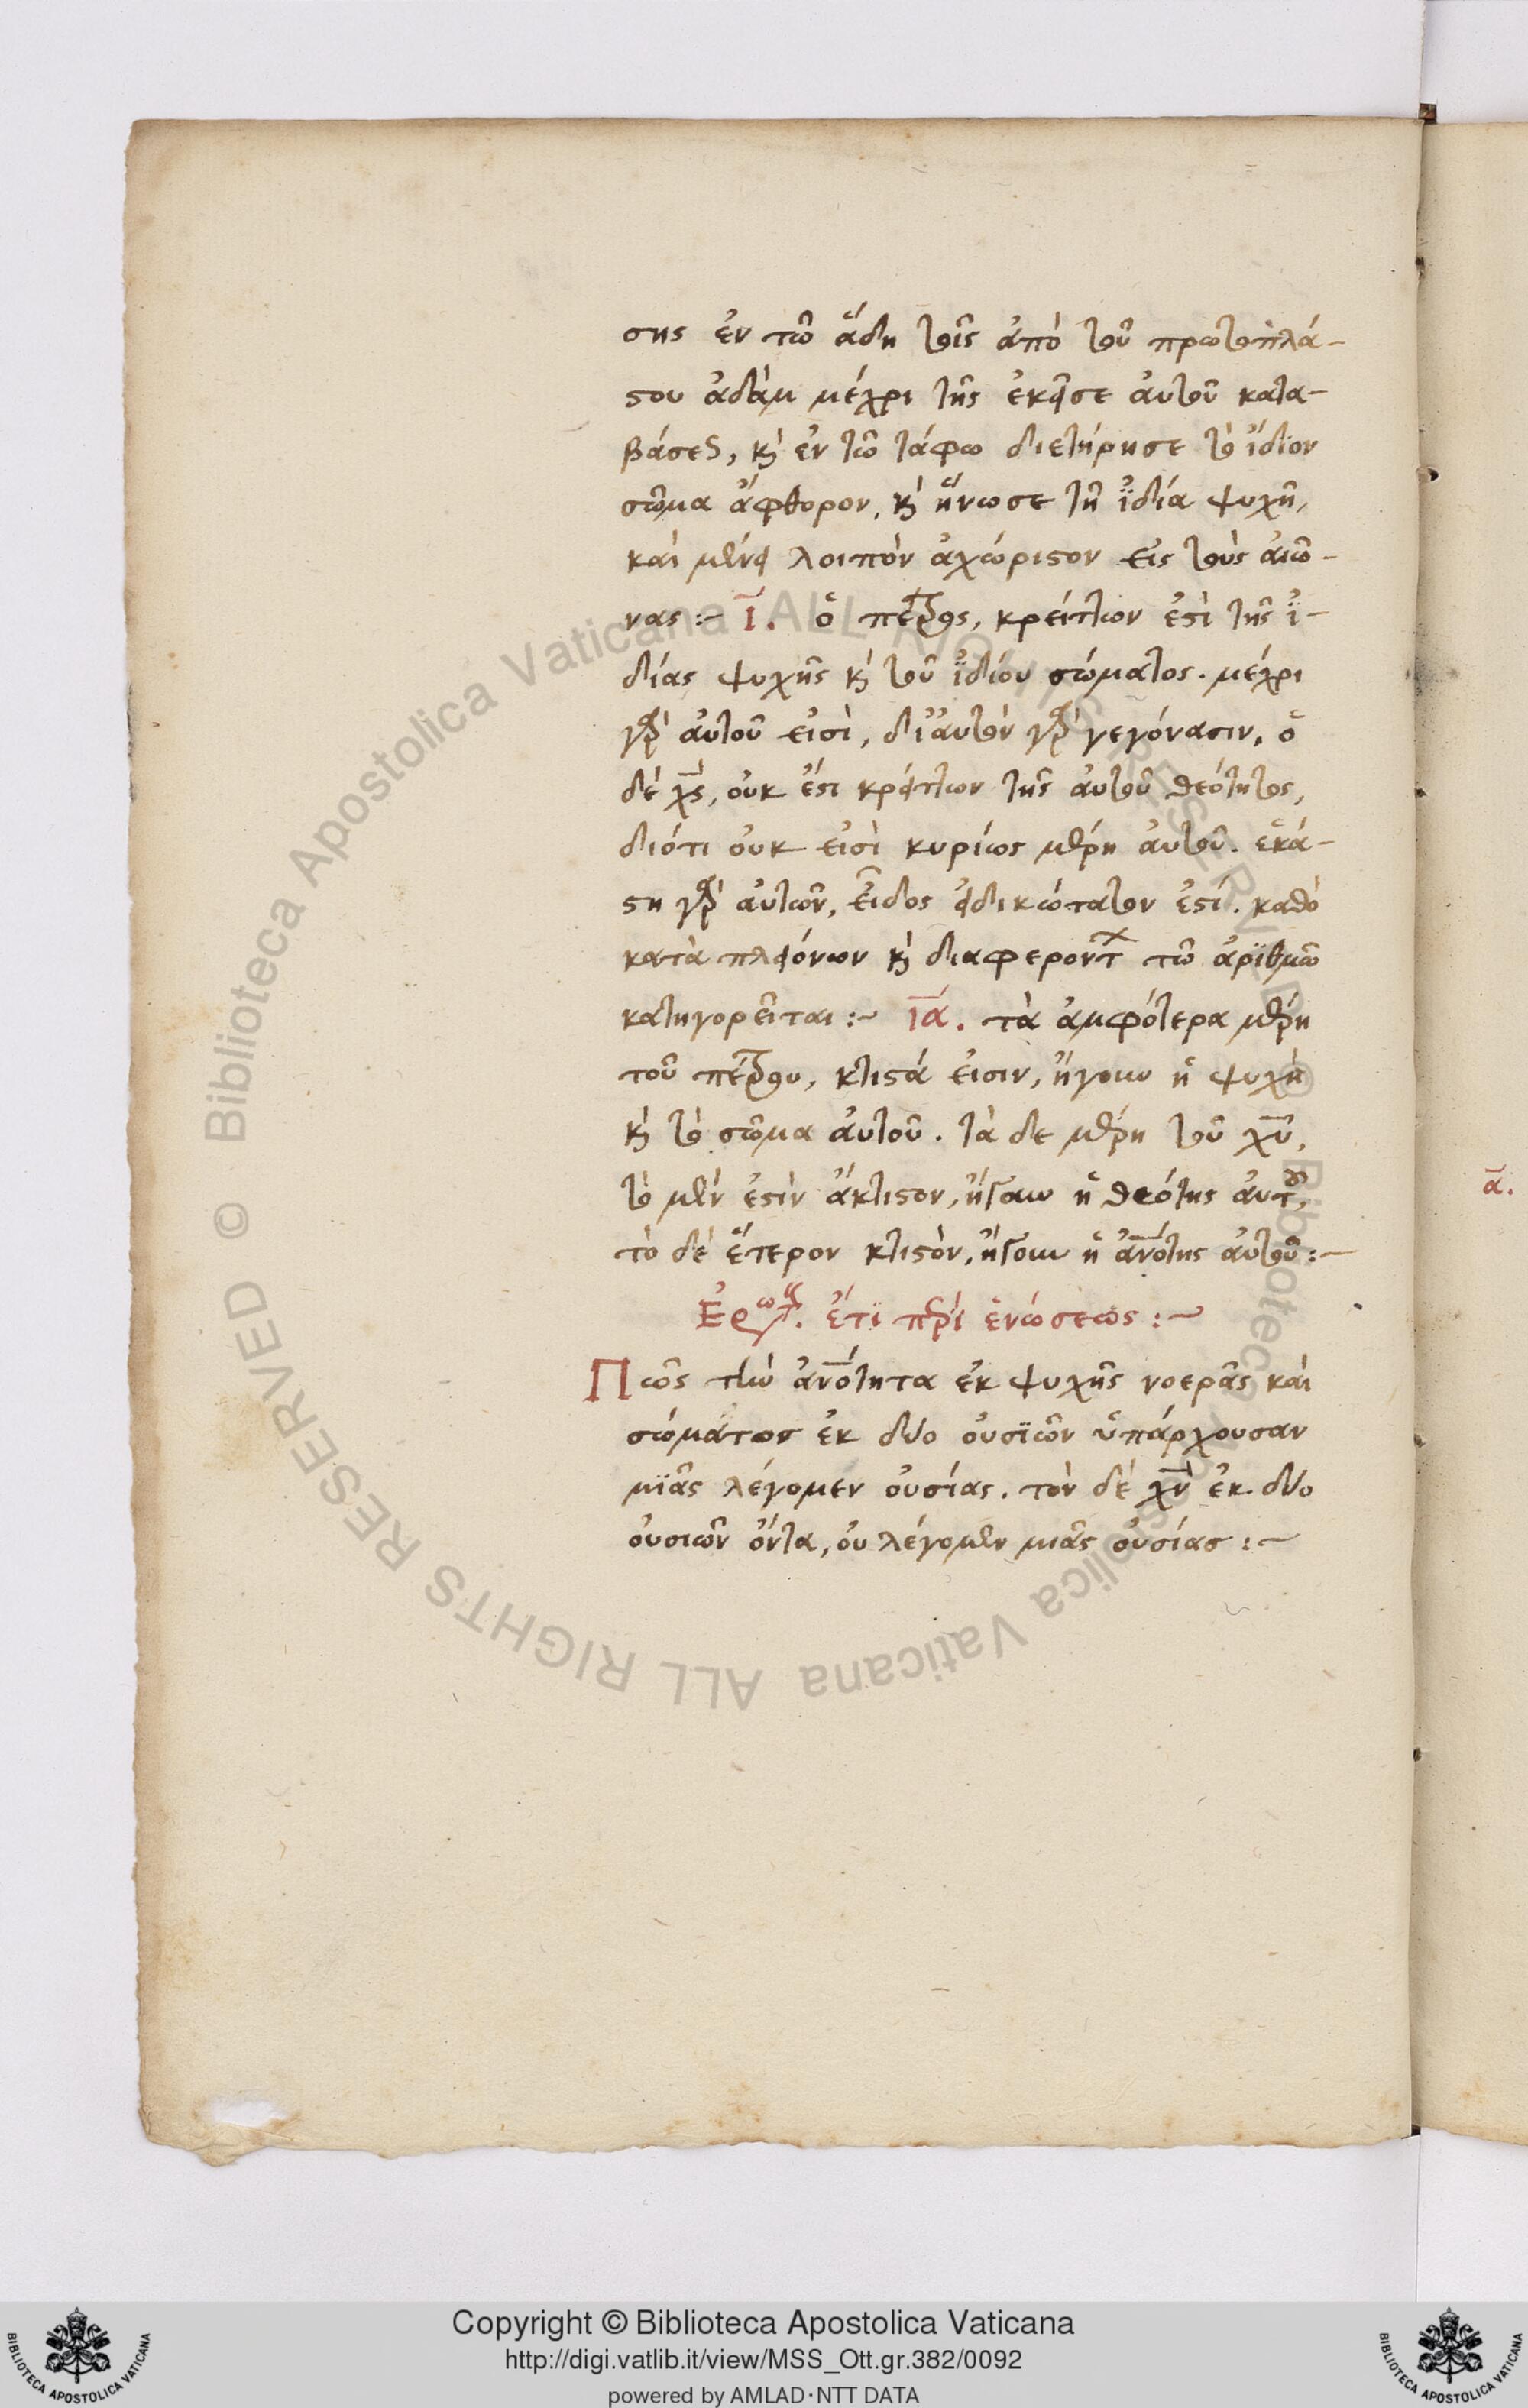 σης ἐν τῶ ἅδη τοῖς ἀπὸ τοῦ πρωτοπλά-
στου ἀδὰμ μέχρι τῆς ἐκεῖσε ἀυτοῦ κατα-
βάσεως, κὶ ἐν τῶ τάφω διετήρησε τὸ ἴδϊον
σῶμα ἄφθορον, κὶ ἥνωσε τῆ ἰδία ψυχῆ,
καὶ μένει λοιπὸν ἀχώριστον εἰς τοὺς ἀιῶ-
νας :~ ι. ὁ πέτρος, κρείττων ἐστὶ τῆς ἰ-
δίας ψυχῆς κὶ τοῦ ἰδίου σώματος. μέχρι
γὰρ ἀυτοῦ εἰσὶ, δι' ἀυτὸν γὰρ γεγόνασιν, ὁ
δὲ χς, ουκ ἔστι κρείττων τῆς ἀυτοῦ θεότητος,
διότι ουκ εἰσὶ κυρίως μέρη ἀυτοῦ. ἑκά-
στη γὰρ ἀυτῶν, εἶδος εἰδικώτατον ἐστί. καθὸ
κατὰ πλειόνων κὶ διαφερόντων τῶ ἀρϊθμῶ
κατηγορεῖται :~ ια. τὰ ἀμφότερα μέρη
τοῦ πέτρου, κτιστά εἰσιν, ἤγουν ἡ ψυχὴ
κὶ τὸ σῶμα ἀυτοῦ. τὰ δε μέρη τοῦ χυ,
τὸ μέν ἐστὶν ἄκτιστον, ἤγουν ἡ θεότης ἀυτοῦ,
τὸ δὲ ἕτερον κτιστὸν, ἤγουν ἡ ἀνότης ἀυτοῦ :~
Ἐρωτ. ἔτϊ περὶ ἑνώσεως :~
Πῶς τὴν ἀνότητα ἐκ ψυχῆς νοερᾶς καὶ
σώματος ἐκ δύο ουσϊῶν ὑπάρχουσαν
μϊᾶς λέγομεν ουσίας. τὸν δὲ χν ἐκ δύο
ουσιῶν ὄντα, ου λέγομεν μιᾶς ουσίας :~
α.
Copyright © Biblioteca Apostolica Vaticana
http://digi.vatlib.it/view/MSS_Ott.gr.382/0092
powered by AMLAD·NTT DATA
© Biblioteca Apostolica Vaticana ALL RIGHTS RESERVED
© Biblioteca Apostolica Vaticana ALL RIGHTS RESERVED
BIBLIOTECA APOSTOLICA VATICANA
BIBLIOTECA APOSTOLICA VATICANA